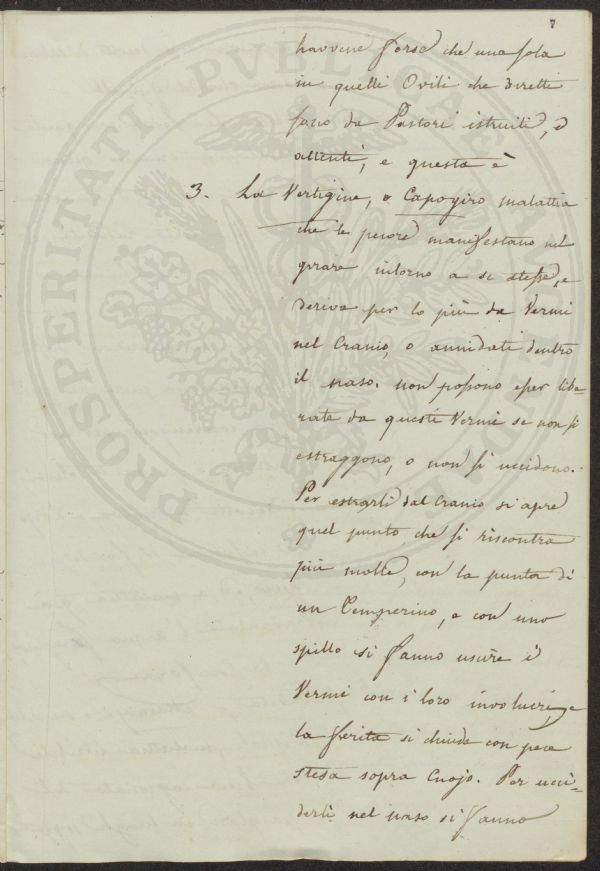 7
havvene forse che una sola
in quelli Ovili che diretti
sono da Pastori istruiti, ed
attenti, e questa è
3. La Vertigine, o Capogiro malattia
che le pecore manifestano nel
girare intorno a se stesse, e
deriva per lo più da Vermi
nel Cranio, o annidati dentro
il naso. non possono esser libe=
rate da questi Vermi se non si
estraggono, o non si uccidono.
Per estrarli dal Cranio si apre
quel punto che si riscontra
più molle, con la punta di
un Temperino, e con uno
spillo si fanno uscire i
Vermi con i loro involucri, e
la ferita si chiude con pece
stesa sopra Cuojo. Per ucci=
derli nel naso si fanno
PROSPERITATI PUBLICAE